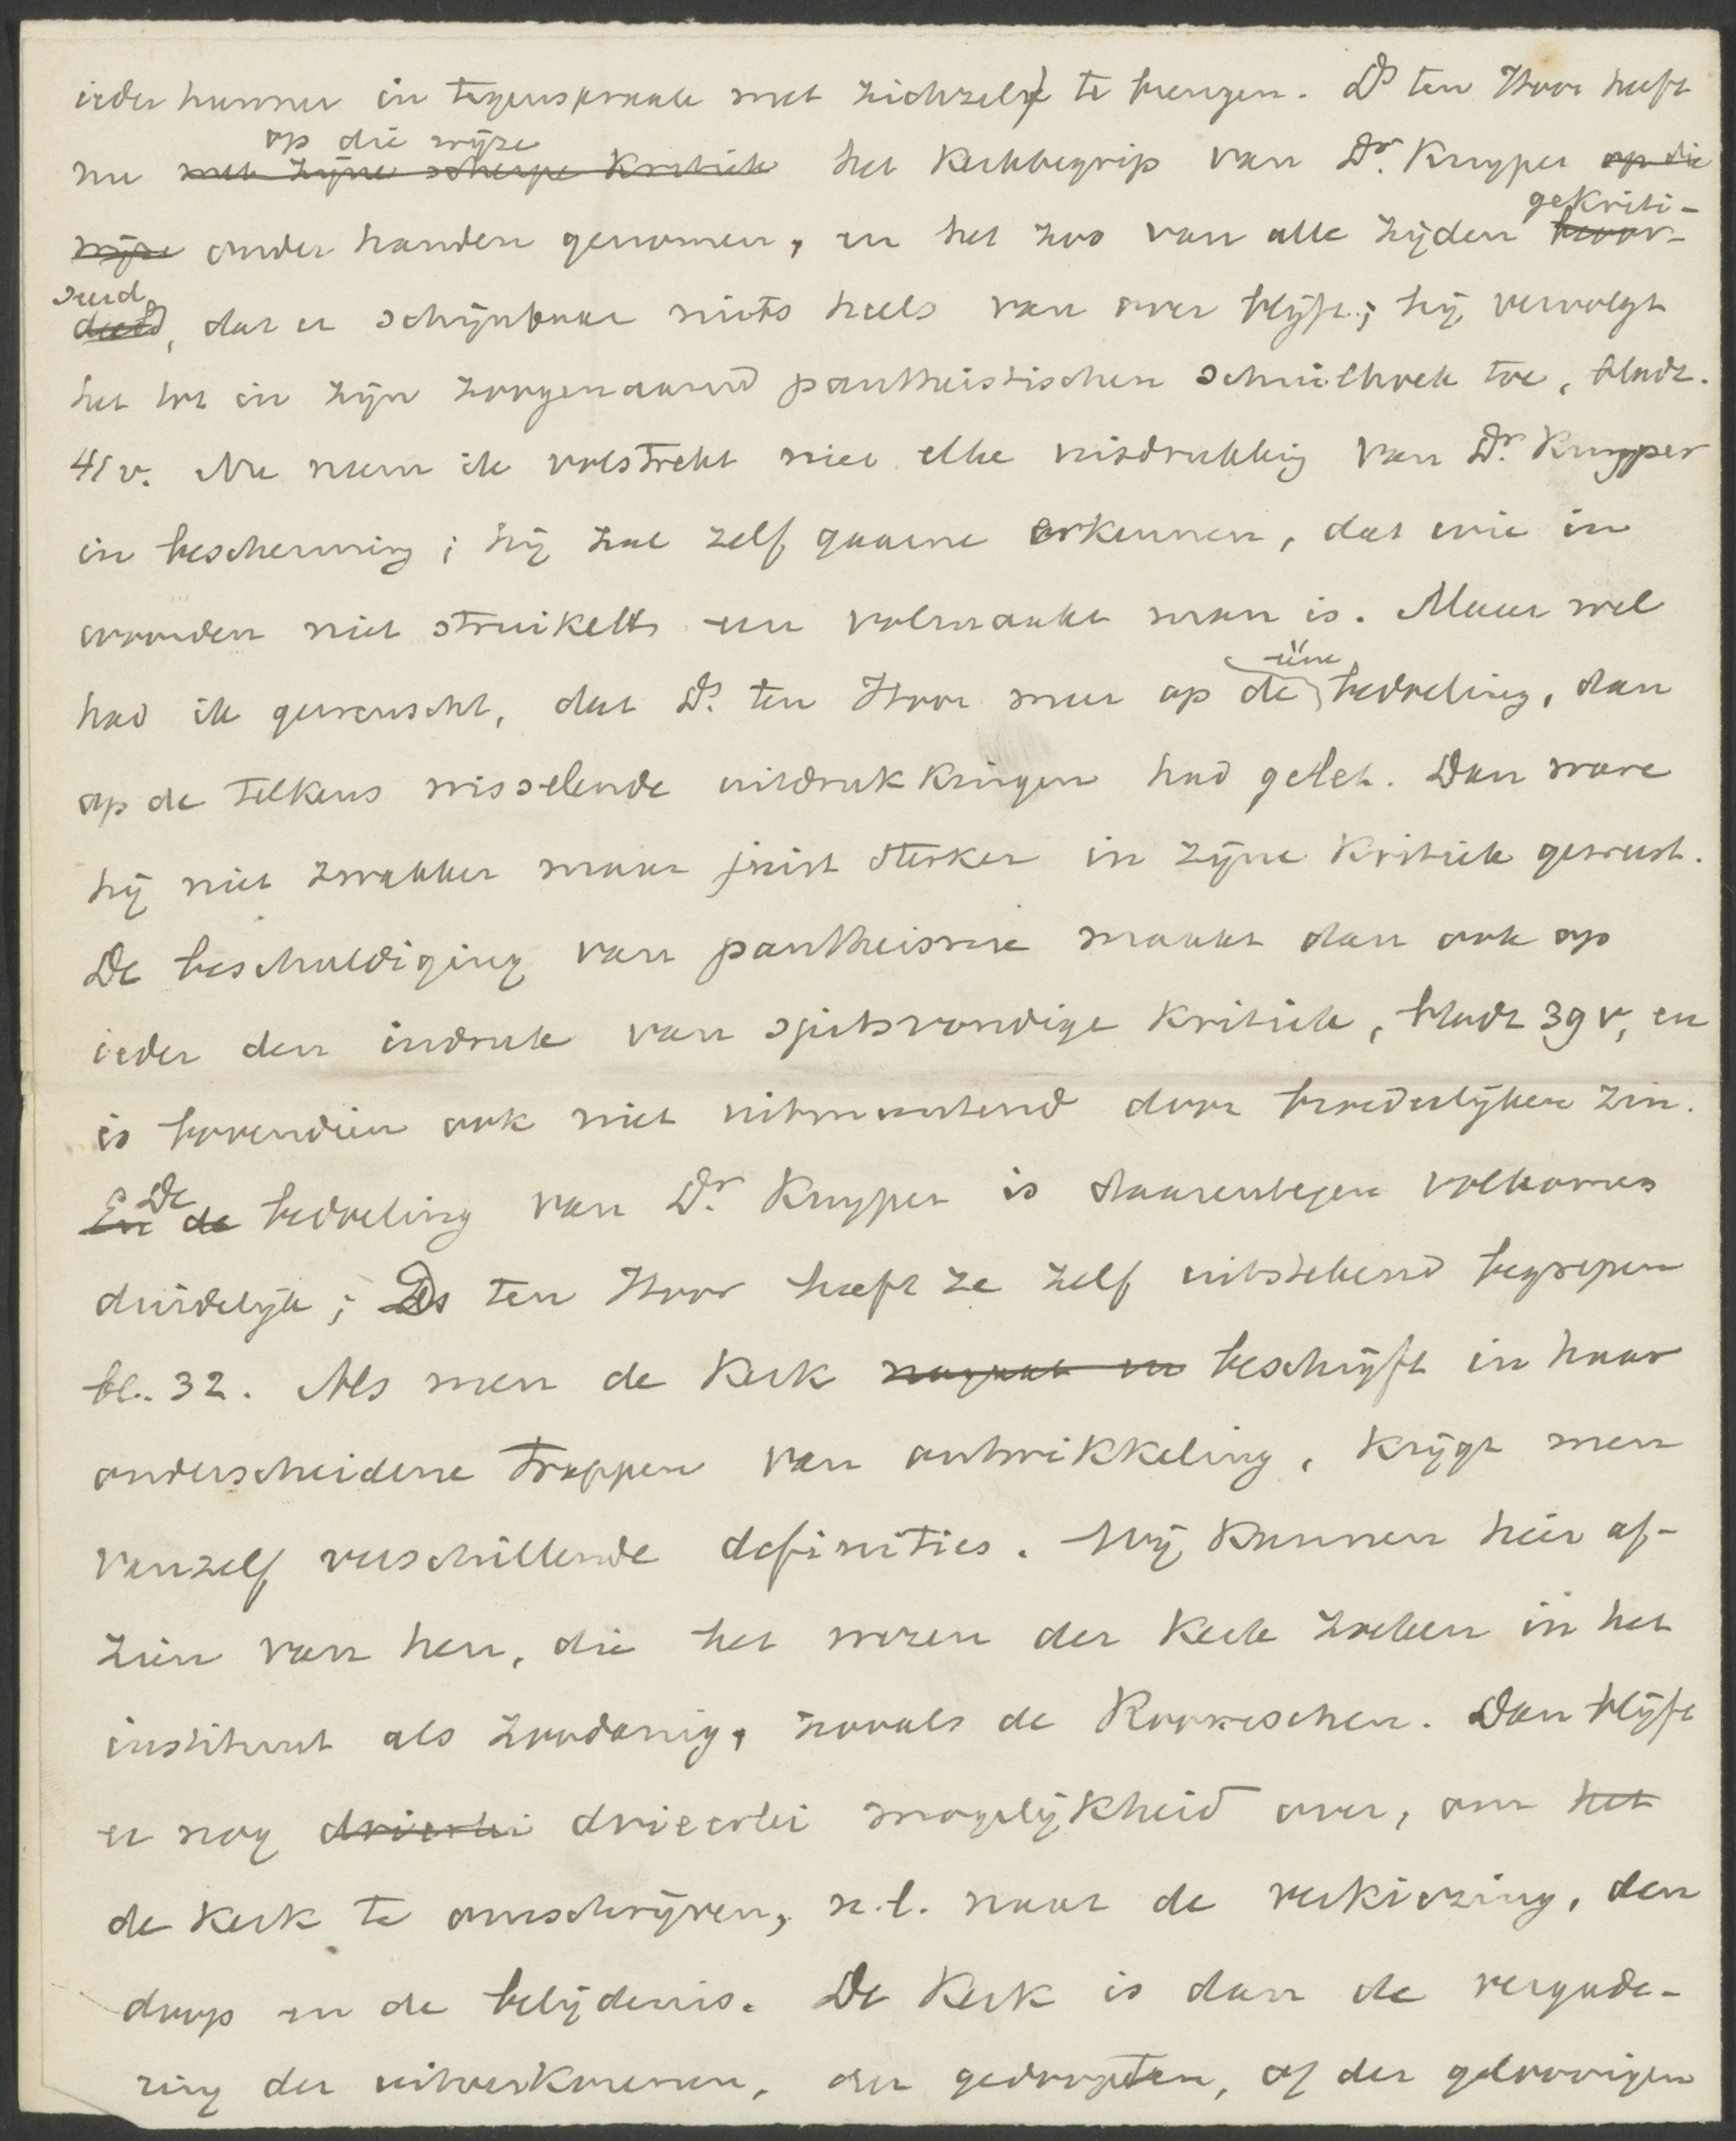 ieder hunner in tegenspraak met zichzelf te brengen. Ds ten Hoor heeft
op die wijze
nu met zijne scherpe kritiek het kerkbegrip van Dr. Kuyper op die
gekriti-
wijze onder handen genomen, en het zoo van alle zijden beoor-
seerd
deeld, dat er schijnbaar niets heels van over blijft; hij vervolgt
het tot in zijn zoogenaamd pantheistischen schuilhoek toe, bladz.
41 v. Nu neem ik volstrekt niet elke uitdrukking van Dr. Kuyper
in bescherming; hij zal zelf gaarne erkennen, dat wie in
woorden niet struikelt een volmaakt man is. Maar wel
ééne
had ik gewenscht, dat Ds. ten Hoor meer op de bedoeling, dan
op de telkens wisselende uitdrukkingen had gelet. Dan ware
hij niet zwakker maar juist sterker in zijne kritiek geweest.
De beschuldiging van pantheisme maakt dan ook op
ieder den indruk van spitsvondige kritiek, bladz 39 v, en
is bovendien ook niet uitmuntend door broederlijken zin.
De
En de bedoeling van Dr. Kuyper is daarentegen volkomen
duidelijk; Ds ten Hoor heeft ze zelf uitstekend begrepen
bl. 32. Als men de kerk nagaat en beschrijft in haar
onderscheidene trappen van ontwikkeling, krijgt men
vanzelf verschillende definities. Wij kunnen hier af-
zien van hen, die het wezen der kerk zoeken in het
instituut als zoodanig, zooals de Roomschen. Dan blijft
er nog drieërlei drieerlei mogelijkheid over, om het
de kerk te omschrijven, n.l. naar de verkiezing, den
doop en de belijdenis. De Kerk is dan de vergade-
ring der uitverkorenen, der gedoopten, of der geloovigen